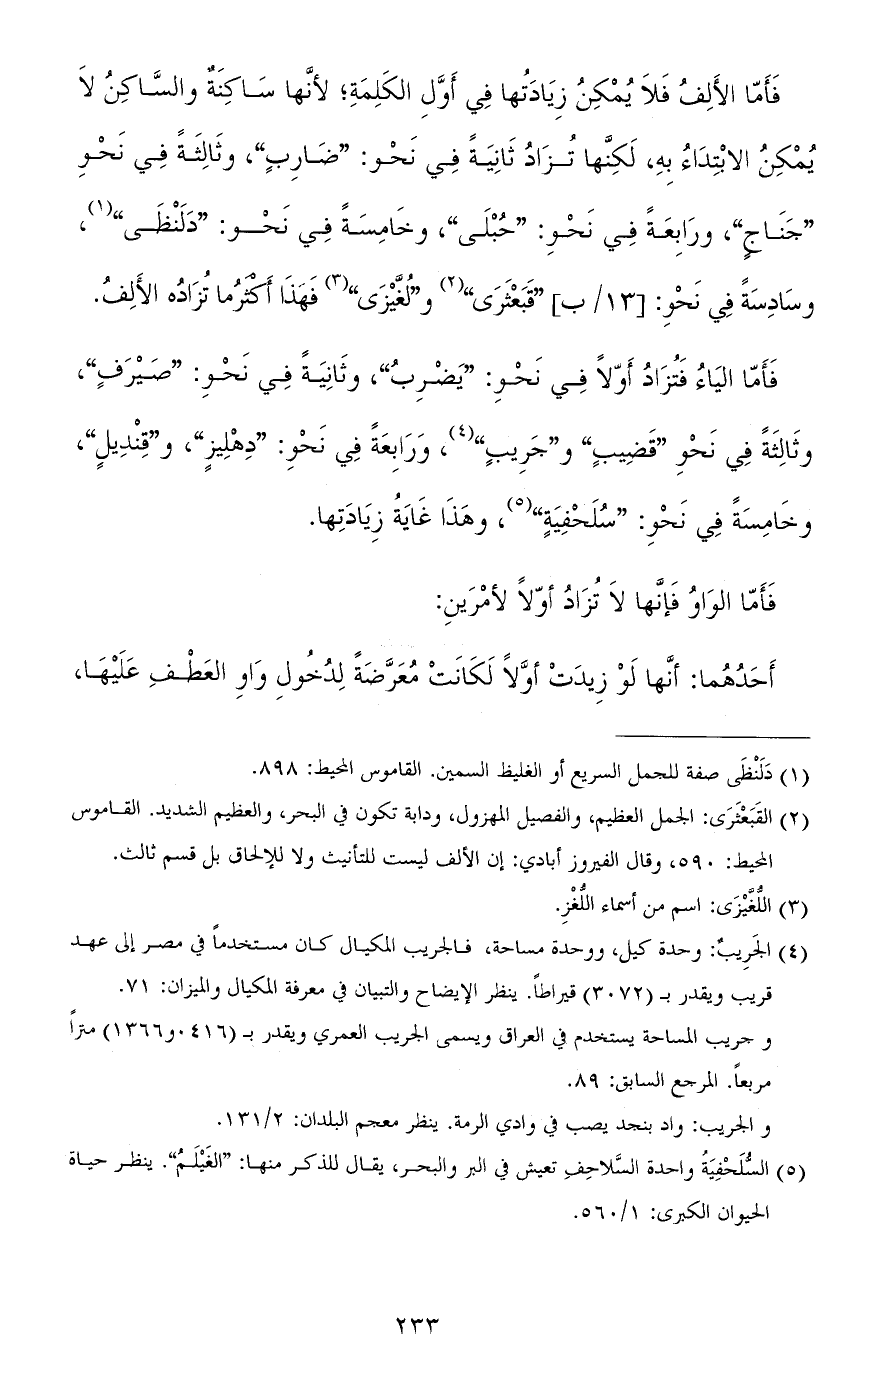 فَأَمّا الأَلِفُ فَلاَ يُمْكِنُ زِيَادَتُها فِي أَوَّلِ الكَلِمَةِ؛ لأنَّها سَاكِنَةٌ والسَّاكِنُ لاَ
يُمْكِنُ الابْتِدَاءُ بِهِ، لَكِنَّها تُزَادُ ثَانِيَةً فِي نَحْوِ: ”ضَارِبٍ“، وثَالِثَةً فِي نَحْوِ
”جَنَاحٍ“، ورَابِعَةً فِي نَحْوِ: ”حُبْلَى“، وخَامِسَةً فِي نَحْوِ: ”دَلَنْظَى“(١)،
وسَادِسَةً فِي نَحْوِ: [١٣/ ب] ”قَبَعْثَرَى“(٢) و”لُغَّيْزَى“(٣) فَهَذَا أَكْثَرُما تُزَادُه الأَلِفُ.
فَأَمّا اليَاءُ فَتُزَادُ أَوّلاً فِي نَحْوِ: ”يَضْرِبُ“، وثَانِيَةً فِي نَحْوِ: ”صَيْرَفٍ“،
وثَالِثَةً فِي نَحْوِ ”قَضِيبٍ“ و”جَرِيبٍ“(٤)، ورَابِعَةً فِي نَحْوِ: ”دِهْلِيزٍ“، و”قِنْدِيلٍ“،
وخَامِسَةً فِي نَحْوِ: ”سُلَحْفِيَةٍ“(٥)، وهَذَا غَايَةُ زِيَادَتِها.
فَأَمّا الوَاوُ فَإنَّها لاَ تُزَادُ أوّلاً لأمْرَينِ:
أَحَدُهُما: أنَّها لَوْ زِيدَتْ أوَّلاً لَكَانَتْ مُعَرَّضَةً لِدُخُولِ وَاوِ العَطْفِ عَلَيْهَا،
(١) دَلَنْظَى صفة للجمل السريع أو الغليظ السمين. القاموس المحيط: ٨٩٨.
(٢) القَبَعْثَرَى: الجمل العظيم، والفصيل المهزول، ودابة تكون في البحر، والعظيم الشديد. القاموس
المحيط: ٥٩٠، وقال الفيروز أبادي: إن الألف ليست للتأنيث ولا للإلحاق بل قسم ثالث.
(٣) اللُّغَّيْزَى: اسم من أسماء اللُّغْز.
(٤) الجَرِيبُ: وحدة كيل، ووحدة مساحة، فالجريب المكيال كان مستخدماً في مصر إلى عهد
قريب ويقدر بـ (٣٠٧٢) قيراطاً. ينظر الإيضاح والتبيان في معرفة المكيال والميزان: ٧١.
و جريب المساحة يستخدم في العراق ويسمى الجريب العمري ويقدر بـ (٠٤١٦و١٣٦٦) متراً
مربعاً. المرجع السابق: ٨٩.
و الجريب: واد بنجد يصب في وادي الرمة. ينظر معجم البلدان: ١٣١/٢.
(٥) السُّلَحْفِيَةُ واحدة السَّلاحِفِ تعيش في البر والبحر، يقال للذكر منها: ”الغَيْلَمُ“. ينظر حياة
الحيوان الكبرى: ٥٦٠/١.
٢٣٣